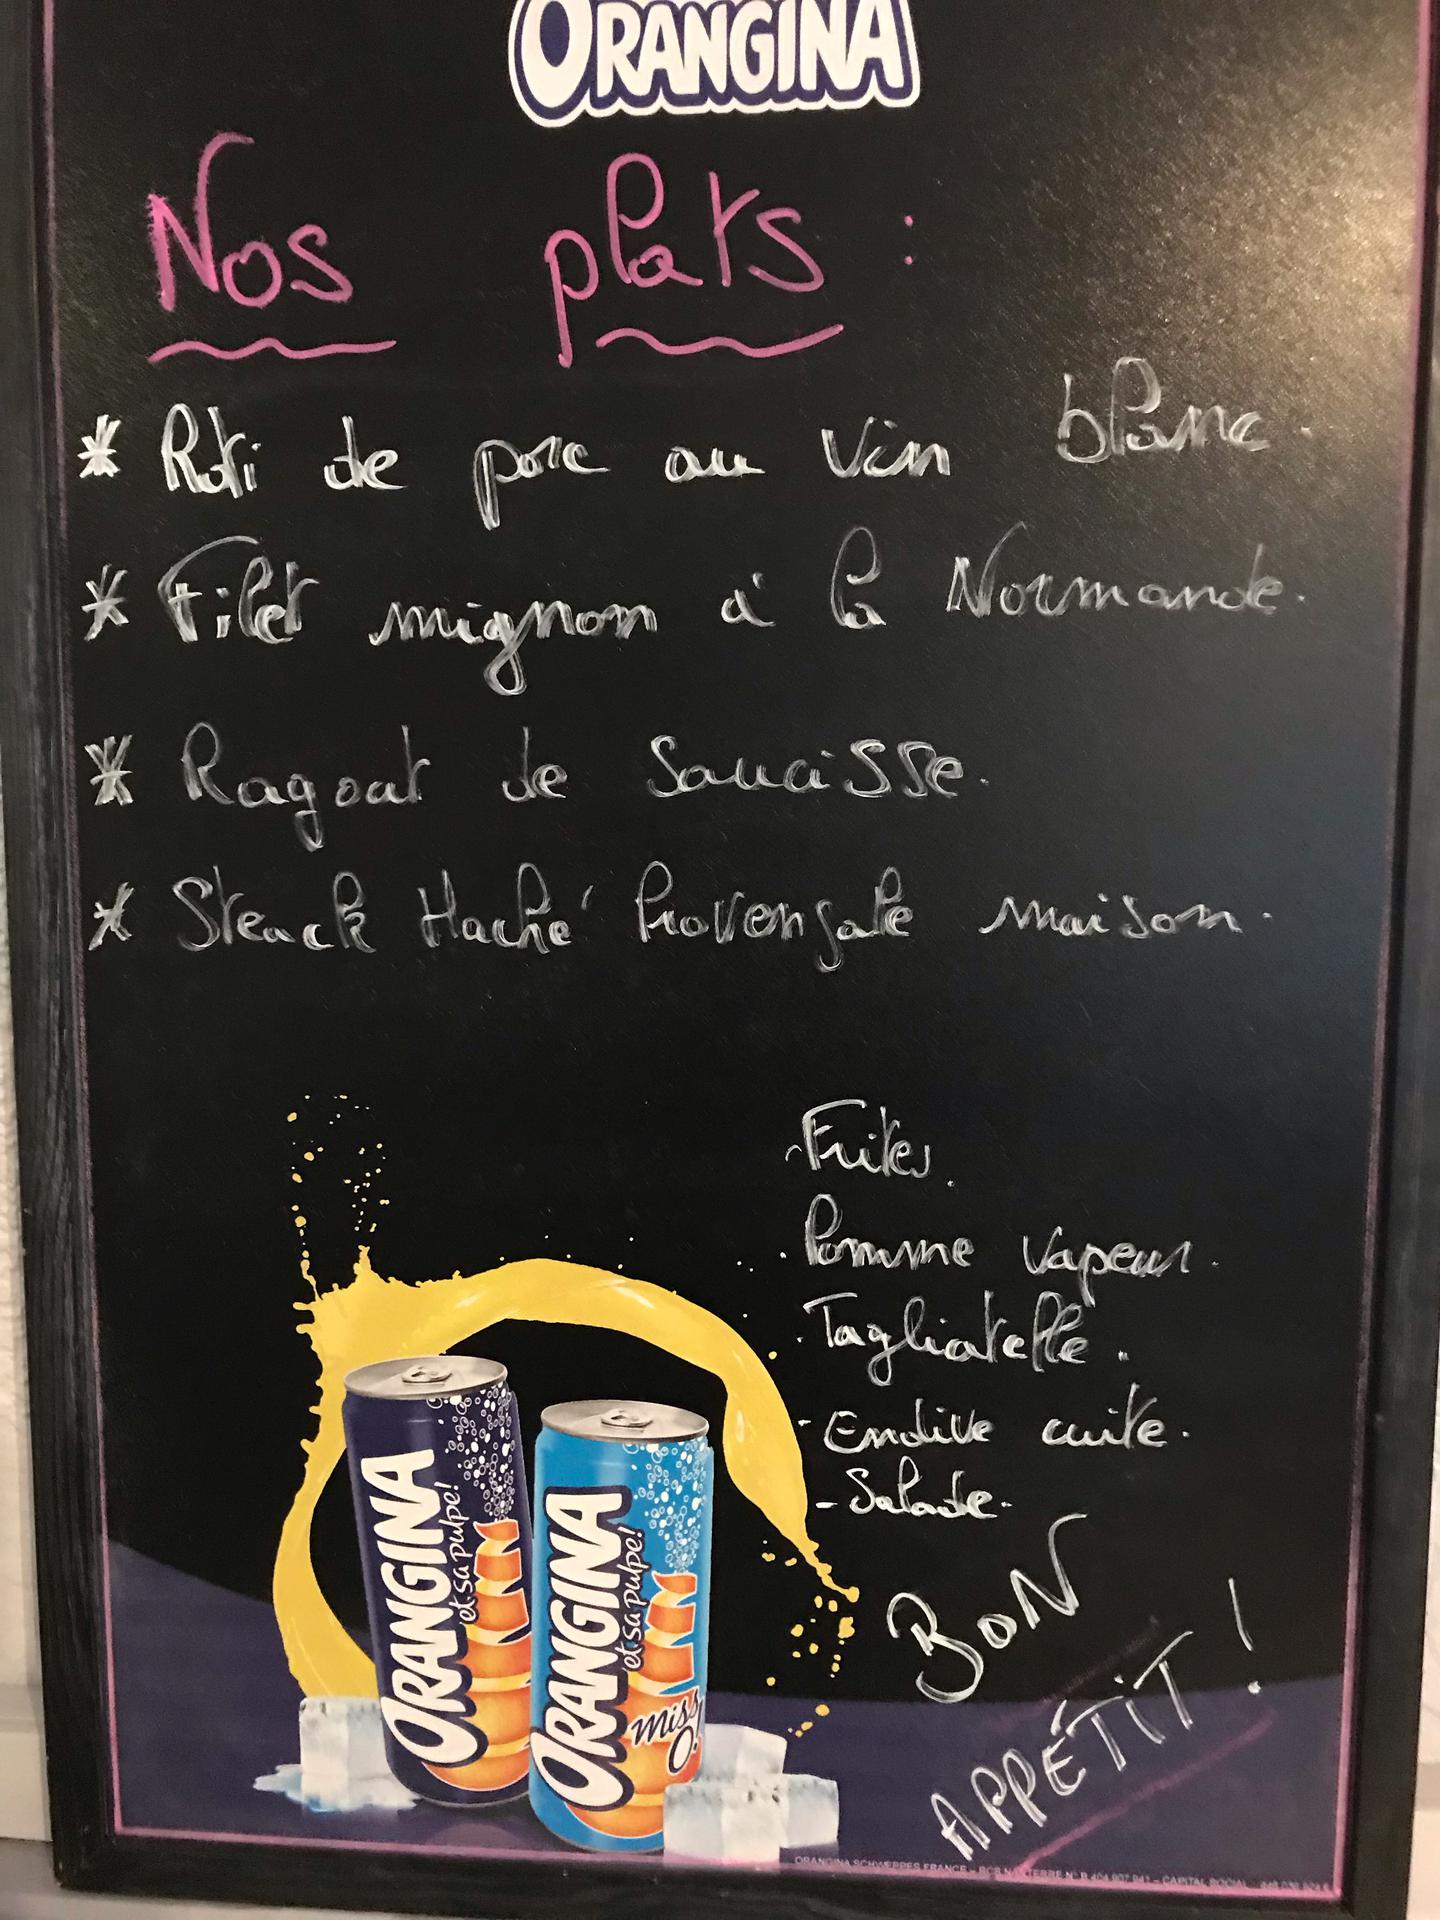 ORANGINA
Nos plats :
* Roti de porc au vin blanc.
* Filet mignon à la Normande.
* Ragout de Saucisse.
* Steack Haché Provençale maison.
- Frites.
. Pomme vapeur.
. Tagliatelle.
- Endive cuite.
- Salade.
BON
APPÉTIT !
ORANGINA
et sa pulpe!
ORANGINA
et sa pulpe!
miss
O!
ORANGINA SCHWEPPES FRANCE – RCS NANTERRE N° B 404 907 941 – CAPITAL SOCIAL